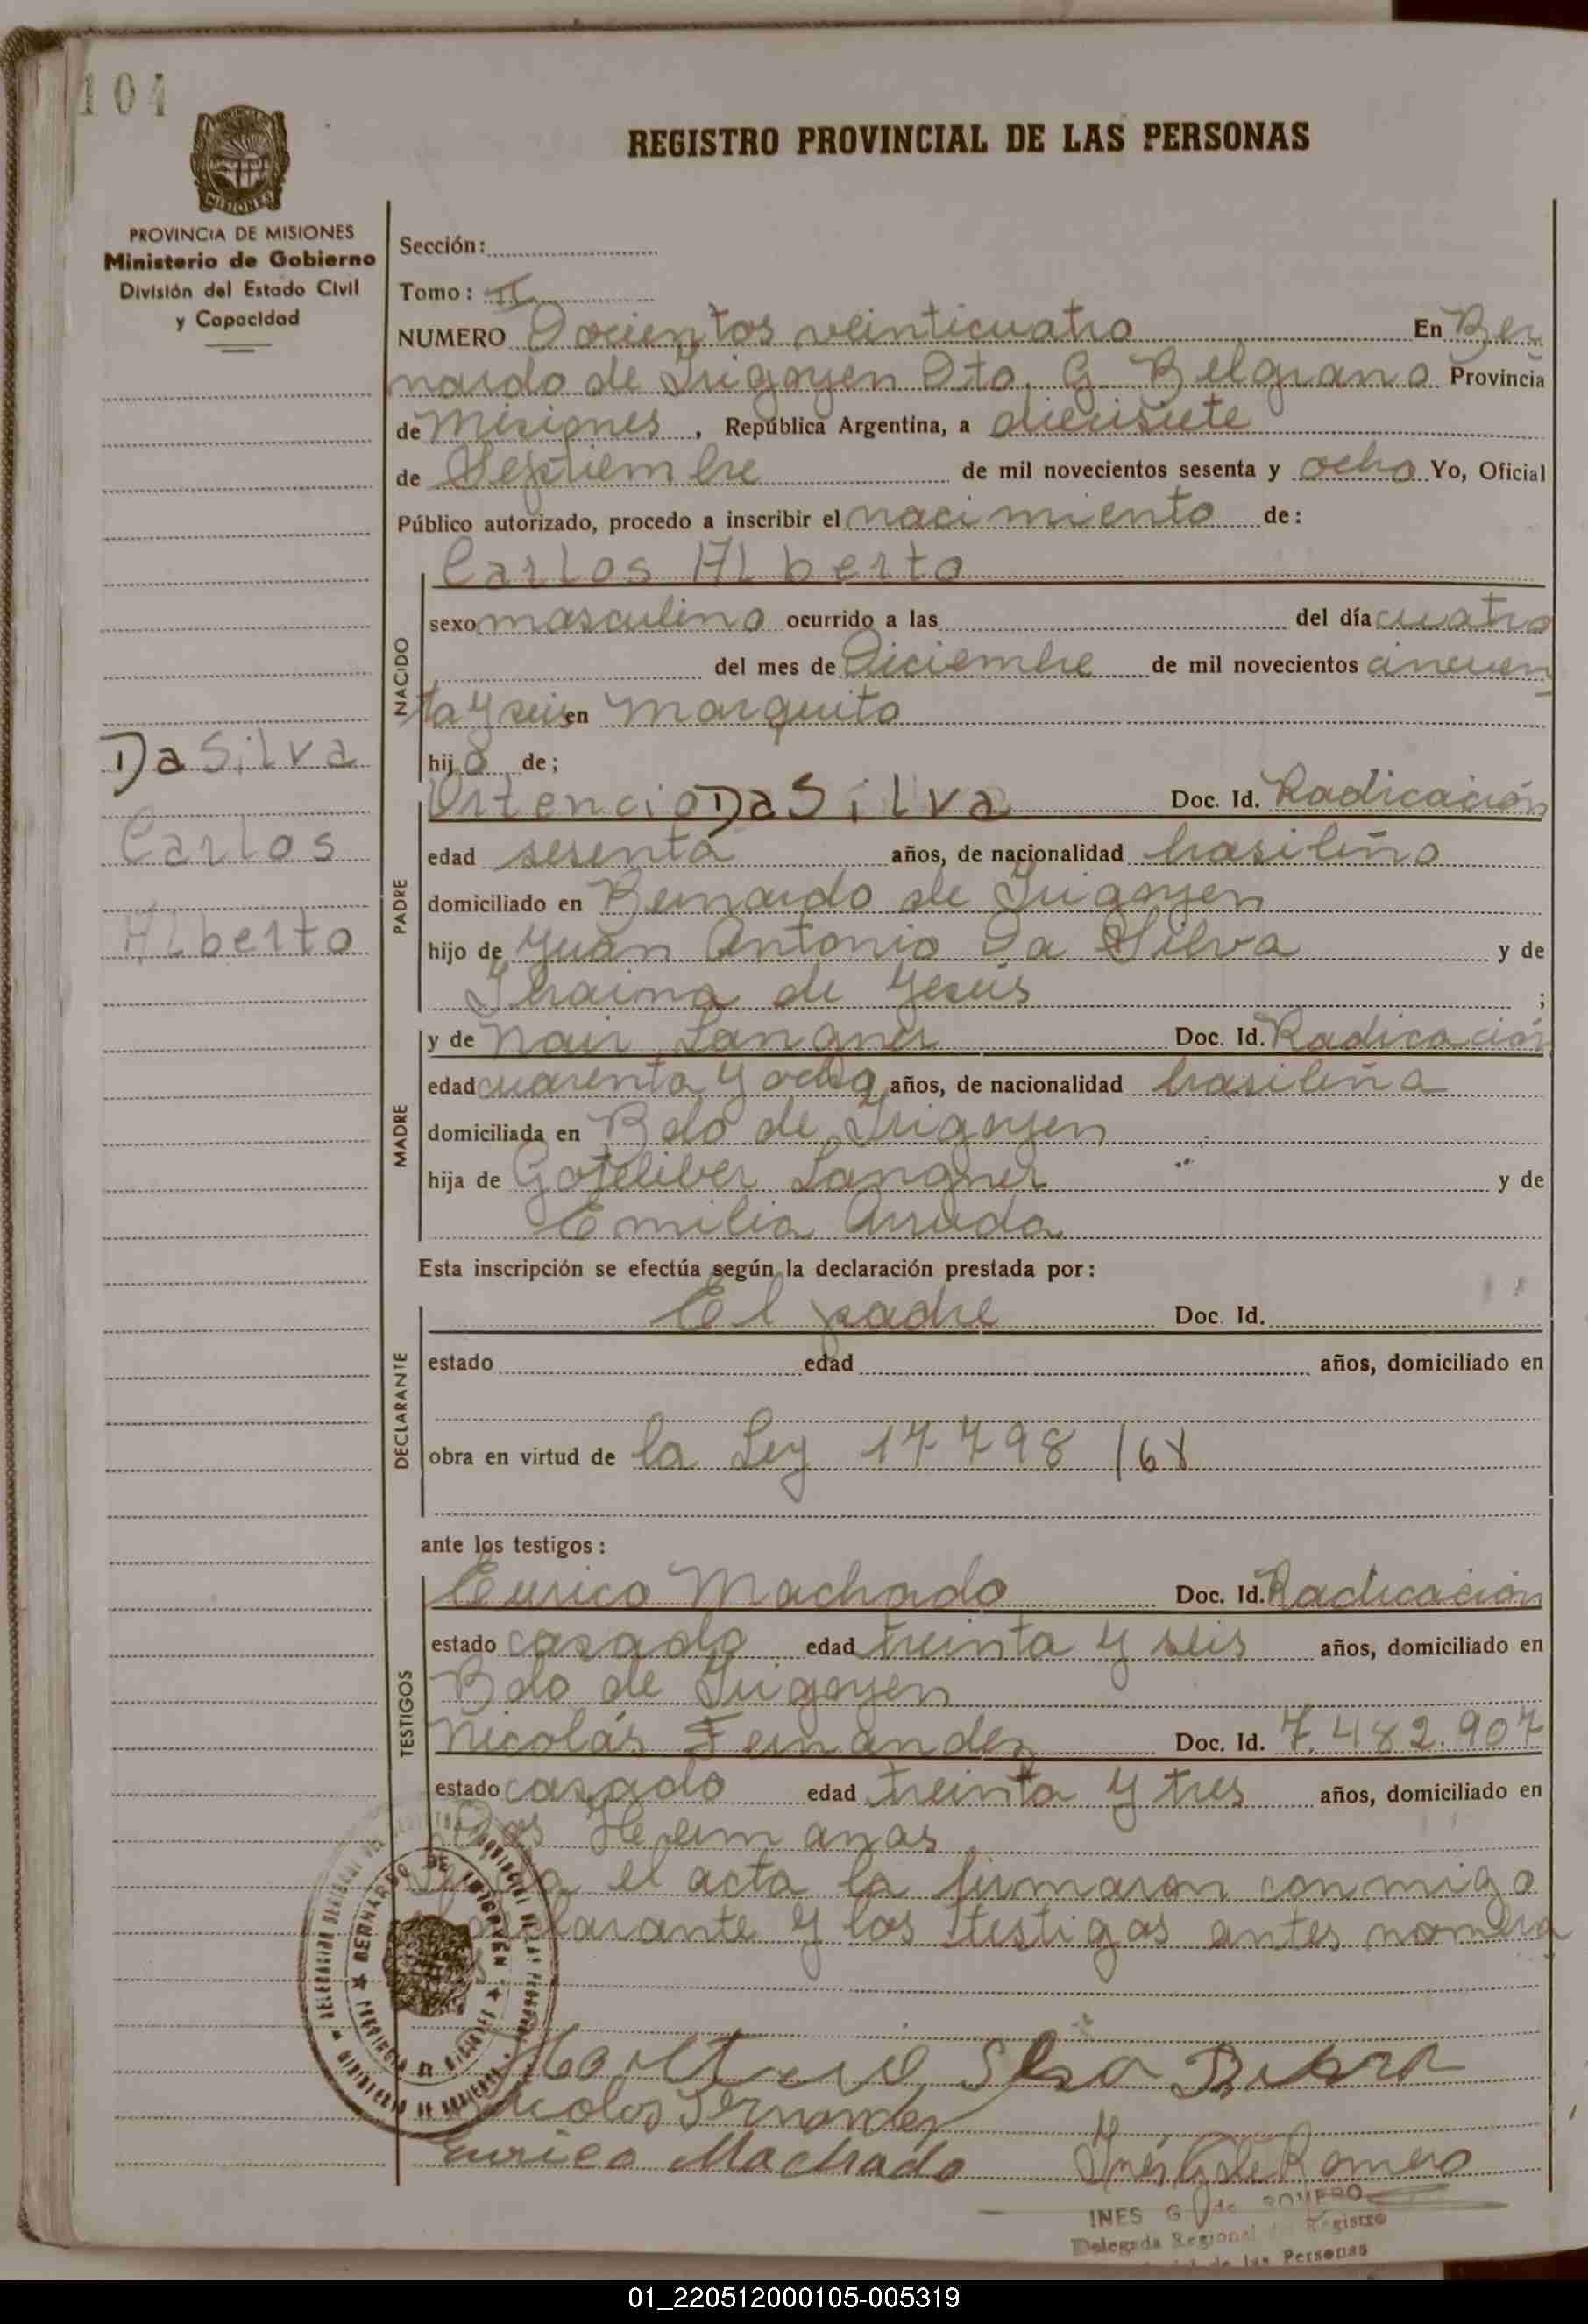 104
REGISTRO PROVINCIAL DE LAS PERSONAS
MISIONES
PROVINCIA DE MISIONES
Ministerio de Gobierno
División del Estado Civil
y Capacidad
Sección:
Tomo: II
NUMERO Docientos veinticuatro En Ber
nardo de Irigoyen Dto. G. Belgrano Provincia
de Misiones, República Argentina, a diecisiete
de Septiembre de mil novecientos sesenta y ocho Yo, Oficial
Público autorizado, procedo a inscribir el nacimiento de:
Carlos Alberto
NACIDO
sexo masculino ocurrido a las del día cuatro
del mes de Diciembre de mil novecientos cincuen
ta y seis en Marquito
hijo de;
Da Silva
Carlos
Alberto
PADRE
Ortencio Da Silva Doc. Id. Radicación
edad sesenta años, de nacionalidad brasileño
domiciliado en Bernardo de Irigoyen
hijo de Juan Antonio Da Silva y de
de Jesús ;
MADRE
y de Nair Langner Doc. Id. Radicación
edad cuarenta y ocho años, de nacionalidad brasileña
domiciliada en Bdo de Irigoyen
hija de Langner y de
Emilia Arruda
Esta inscripción se efectúa según la declaración prestada por:
DECLARANTE
El padre Doc. Id.
estado edad años, domiciliado en
obra en virtud de la Ley 17798/68
ante los testigos:
TESTIGOS
Eurico Machado Doc. Id. Radicación
estado casado edad treinta y seis años, domiciliado en
Bdo de Irigoyen
Nicolás Fernandez Doc. Id. 7.482.907
estado casado edad treinta y tres años, domiciliado en
Dos Heermanas
el acta la firmaron conmigo
y los testigos antes nombra
BERNARDO DE IRIGOYEN
PROVINCIA DE MISIONES
Nicolas Fernandez
Eurico Machado
Inés G de Romero
INES G. de ROMERO
Delegada Regional del Registro
de las Personas
01_220512000105-005319